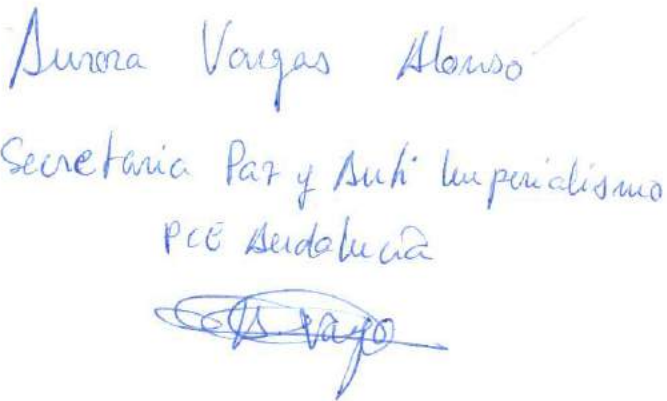 Aurora Vargas Alonso
Secretaria Paz y Anti Imperialismo
PCE Andalucía